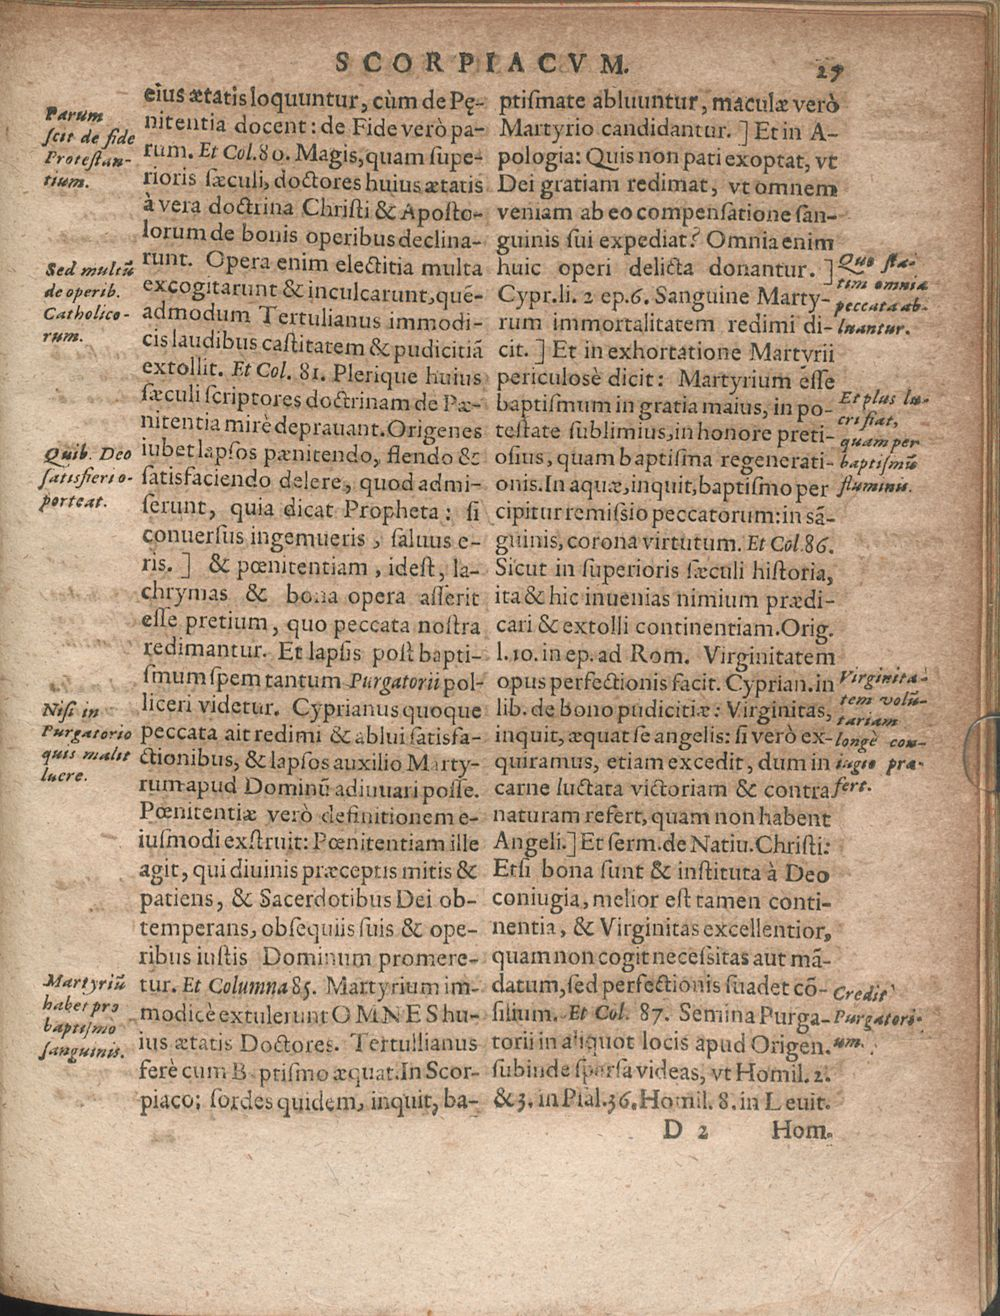 SCORPIACVM.
27
eius ætatis loquuntur, cùm de Pę-
nitentia docent: de Fide verò pa-
rum. Et Col. 80. Magis, quam supe-
rioris sæculi, doctores huius ætatis
à vera doctrina Christi & Aposto-
lorum de bonis operibus declina-
runt. Opera enim electitia multa
excogitarunt & inculcarunt, quē-
admodum Tertulianus immodi-
cis laudibus castitatem & pudicitiā
extollit. Et Col. 81. Plerique huius
sæculi scriptores doctrinam de Pæ-
nitentia mirè deprauant. Origenes
iubet lapsos pænitendo, flendo &
satisfaciendo delere, quod admi-
serunt, quia dicat Propheta: si
conuersus ingemueris, saluus e-
ris. ] & pœnitentiam, idest, la-
chrymas & bona opera asserit
esse pretium, quo peccata nostra
redimantur. Et lapsis post bapti-
smum spem tantum Purgatorii pol-
liceri videtur. Cyprianus quoque
peccata ait redimi & ablui satisfa-
ctionibus, & lapsos auxilio Marty-
rum apud Dominū adiuuari posse.
Pœnitentiæ verò definitionem e-
iusmodi exstruit: Pœnitentiam ille
agit, qui diuinis præceptis mitis &
patiens, & Sacerdotibus Dei ob-
temperans, obsequiis suis & ope-
ribus iustis Dominum promere-
tur. Et Columna 85. Martyrium im-
modicè extulerunt OMNES hu-
ius ætatis Doctores. Tertullianus
ferè cum Baptismo æquat. In Scor-
piaco; sordes quidem, inquit, ba-
Parum
scit de fide
Protestan-
tium.
Sed multū
de operib.
Catholico-
rum.
Quib. Deo
satisfieri o-
porteat.
Nisi in
Purgatorio
quis malit
luere.
Martyriū
habet pro
baptismo
sanguinis.
ptismate abluuntur, maculæ verò
Martyrio candidantur. ] Et in A-
pologia: Quis non pati exoptat, vt
Dei gratiam redimat, vt omnem
veniam ab eo compensatione san-
guinis sui expediat? Omnia enim
huic operi delicta donantur. ]
Cypr. li. 2 ep. 6. Sanguine Marty-
rum immortalitatem redimi di-
cit. ] Et in exhortatione Martyrii
periculosè dicit: Martyrium esse
baptismum in gratia maius, in po-
testate sublimius, in honore preti-
osius, quam baptisma regenerati-
onis. In aquæ, inquit, baptismo per
cipitur remissio peccatorum: in sā-
guinis, corona virtutum. Et Col. 86.
Sicut in superioris sæculi historia,
ita & hic inuenias nimium prædi-
cari & extolli continentiam. Orig.
l. 10. in ep. ad Rom. Virginitatem
opus perfectionis facit. Cyprian. in
lib. de bono pudicitiæ: Virginitas,
inquit, æquat se angelis: si verò ex-
quiramus, etiam excedit, dum in
carne luctata victoriam & contra
naturam refert, quam non habent
Angeli. ] Et serm. de Natiu. Christi:
Etsi bona sunt & instituta à Deo
coniugia, melior est tamen conti-
nentia, & Virginitas excellentior,
quam non cogit necessitas aut mā-
datum, sed perfectionis suadet cō-
silium. Et Col. 87. Semina Purga-
torii in aliquot locis apud Origen.
subinde sparsa videas, vt Homil. 2.
& 3. in Psal. 36. Homil. 8. in Leuit.
Quo sta-
tim omnia
peccata ab-
luantur.
Et plus lu-
crifiat,
quam per
baptismū
fluminis.
Virginita-
tem volū-
tariam
longè con-
iugio præ-
fert.
Credit
Purgatori-
um.
D 2
Hom.